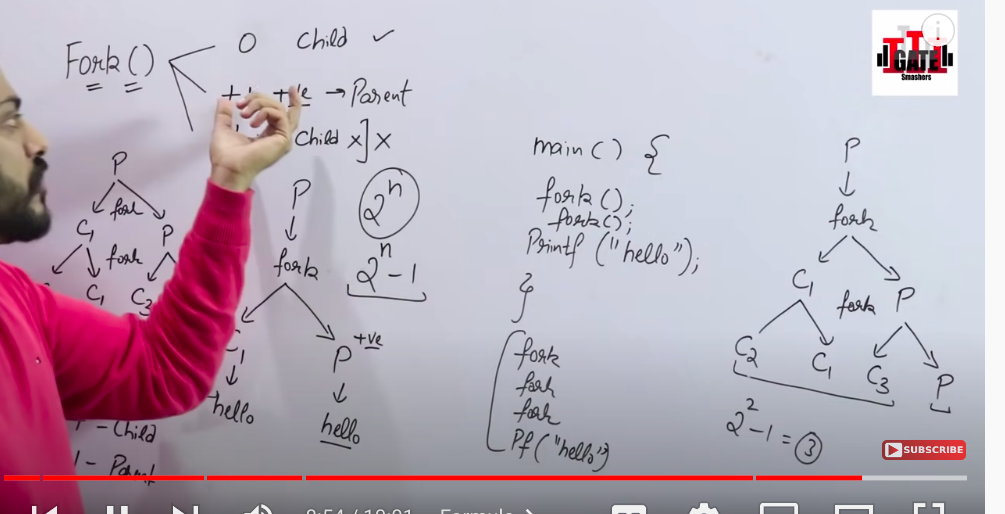 Fork()
0 Child ✓
+ve → Parent
Child x] x
P
fork
C1 P
fork
C1 C3
P
fork
P +ve
hello
hello
2^n
2^n - 1
- Child
main() {
fork();
fork();
Printf ("hello");
}
fork
fork
fork
Pf("hello")
P
fork
C1 fork P
C2 C1 C3 P
2^2 - 1 = 3
GATE
Smashers
i
SUBSCRIBE